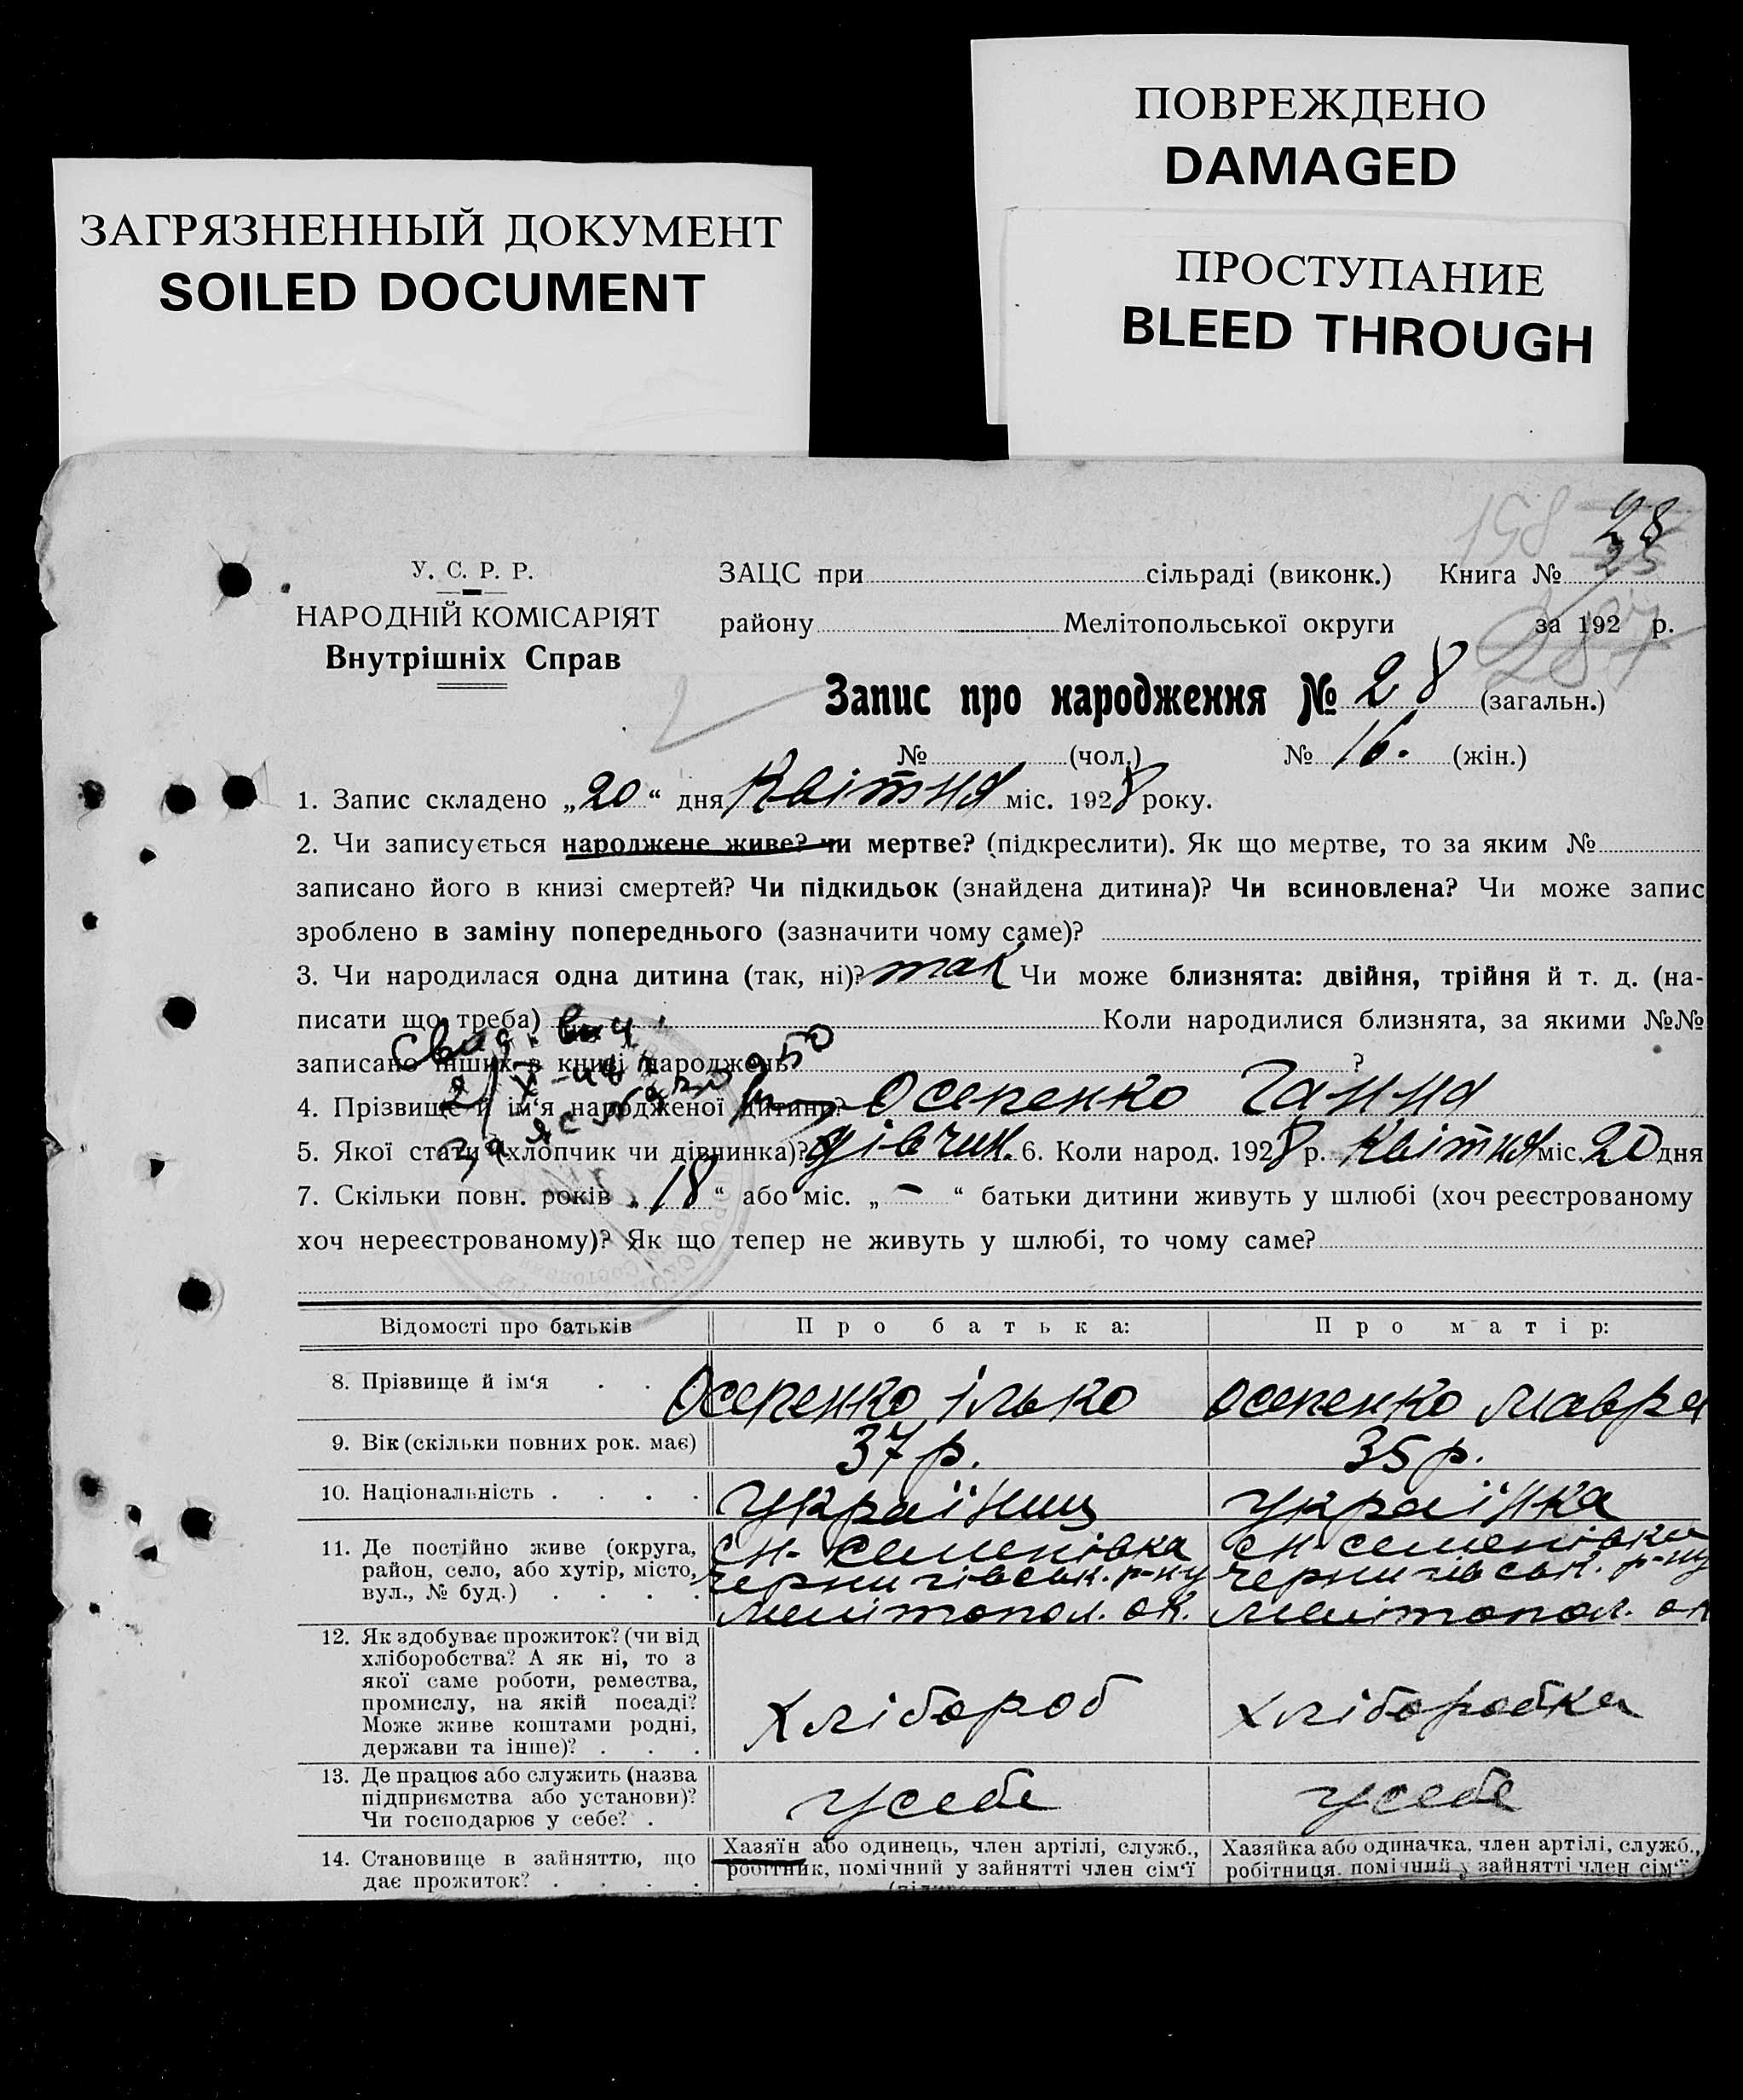 ПОВРЕЖДЕНО
DAMAGED
ЗАГРЯЗНЕННЫЙ ДОКУМЕНТ
SOILED DOCUMENT
ПРОСТУПАНИЕ
BLEED THROUGH
198 28
25
У. С. Р. Р.
НАРОДНІЙ КОМІСАРІЯТ
Внутрішніх Справ
ЗАЦС при сільраді (виконк.) Книга №
району Мелітопольської округи за 192 р.
287
Запис про народження № 28 (загальн.)
№ (чол.) № 16. (жін.)
1. Запис складено „20“ дня Квітня міс. 1928 року.
2. Чи записується народжене живе? чи мертве? (підкреслити). Як що мертве, то за яким №
записано його в книзі смертей? Чи підкидьок (знайдена дитина)? Чи всиновлена? Чи може запис
зроблено в заміну попереднього (зазначити чому саме)?
3. Чи народилася одна дитина (так, ні)? так Чи може близнята: двійня, трійня й т. д. (на-
писати що треба) Коли народилися близнята, за якими №№
записано інших в книзі народжень? ?
4. Прізвище й ім'я народженої дитини? Осепенко Ганна
5. Якої стати (хлопчик чи дівчинка)? дівчин. 6. Коли народ. 1928 р. Квітня міс. 20 дня
7. Скільки повн. років „18“ або міс. „-“ батьки дитини живуть у шлюбі (хоч реєстрованому
хоч нереєстрованому)? Як що тепер не живуть у шлюбі, то чому саме?
Відомості про батьків Про батька: Про матір:
8. Прізвище й ім'я . . Осепенко Ілько Осепенко Мавра
9. Вік (скільки повних рок. має) 37 р. 35 р.
10. Національність . . . . Українец Українка
11. Де постійно живе (округа, ен-Семенівка ен-Семенівка
район, село, або хутір, місто, Чернигівськ. р-ну Чернигівськ. р-ну
вул., № буд.) . . . . Мелітопол. ок. Мелітопол. ок
12. Як здобуває прожиток? (чи від
хліборобства? А як ні, то з
якої саме роботи, ремества,
промислу, на якій посаді?
Може живе коштами родні,
держави та інше)? . . . Хлібороб Хліборобка
13. Де працює або служить (назва
підприємства або установи)?
Чи господарює у себе? . усебе усебе
14. Становище в зайняттю, що
дає прожиток? . . . .
Хазяїн або одинець, член артілі, служб.,
робітник, помічний у зайнятті член сім'ї
Хазяйка або одиначка, член артілі, служб.,
робітниця, помічний у зайнятті член сім'ї